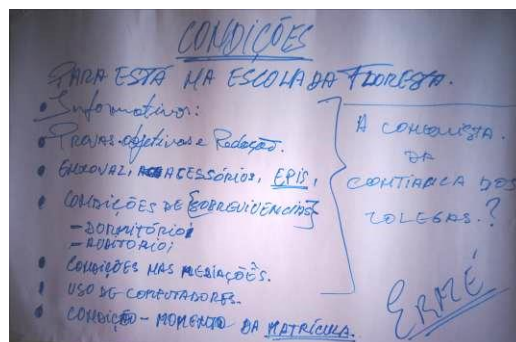 CONDIÇÕES
PARA ESTÁ NA ESCOLA DA FLORESTA.
• Informativos:
• PROVAS-objetivas e Redação.
• ENXOVAL, ACESSÓRIOS, EPIS,
• CONDIÇÕES DE SOBREVIVENCIAS
- DORMITÓRIO;
- AUDITÓRIO;
• CONDIÇÕES NAS MEDIAÇÕES.
• USO DE COMPUTADORES.
• CONDIÇÃO - MOMENTO DA MATRÍCULA.
A CONQUISTA
DA
CONFIANCA DOS
COLEGAS.?
ERMÉ